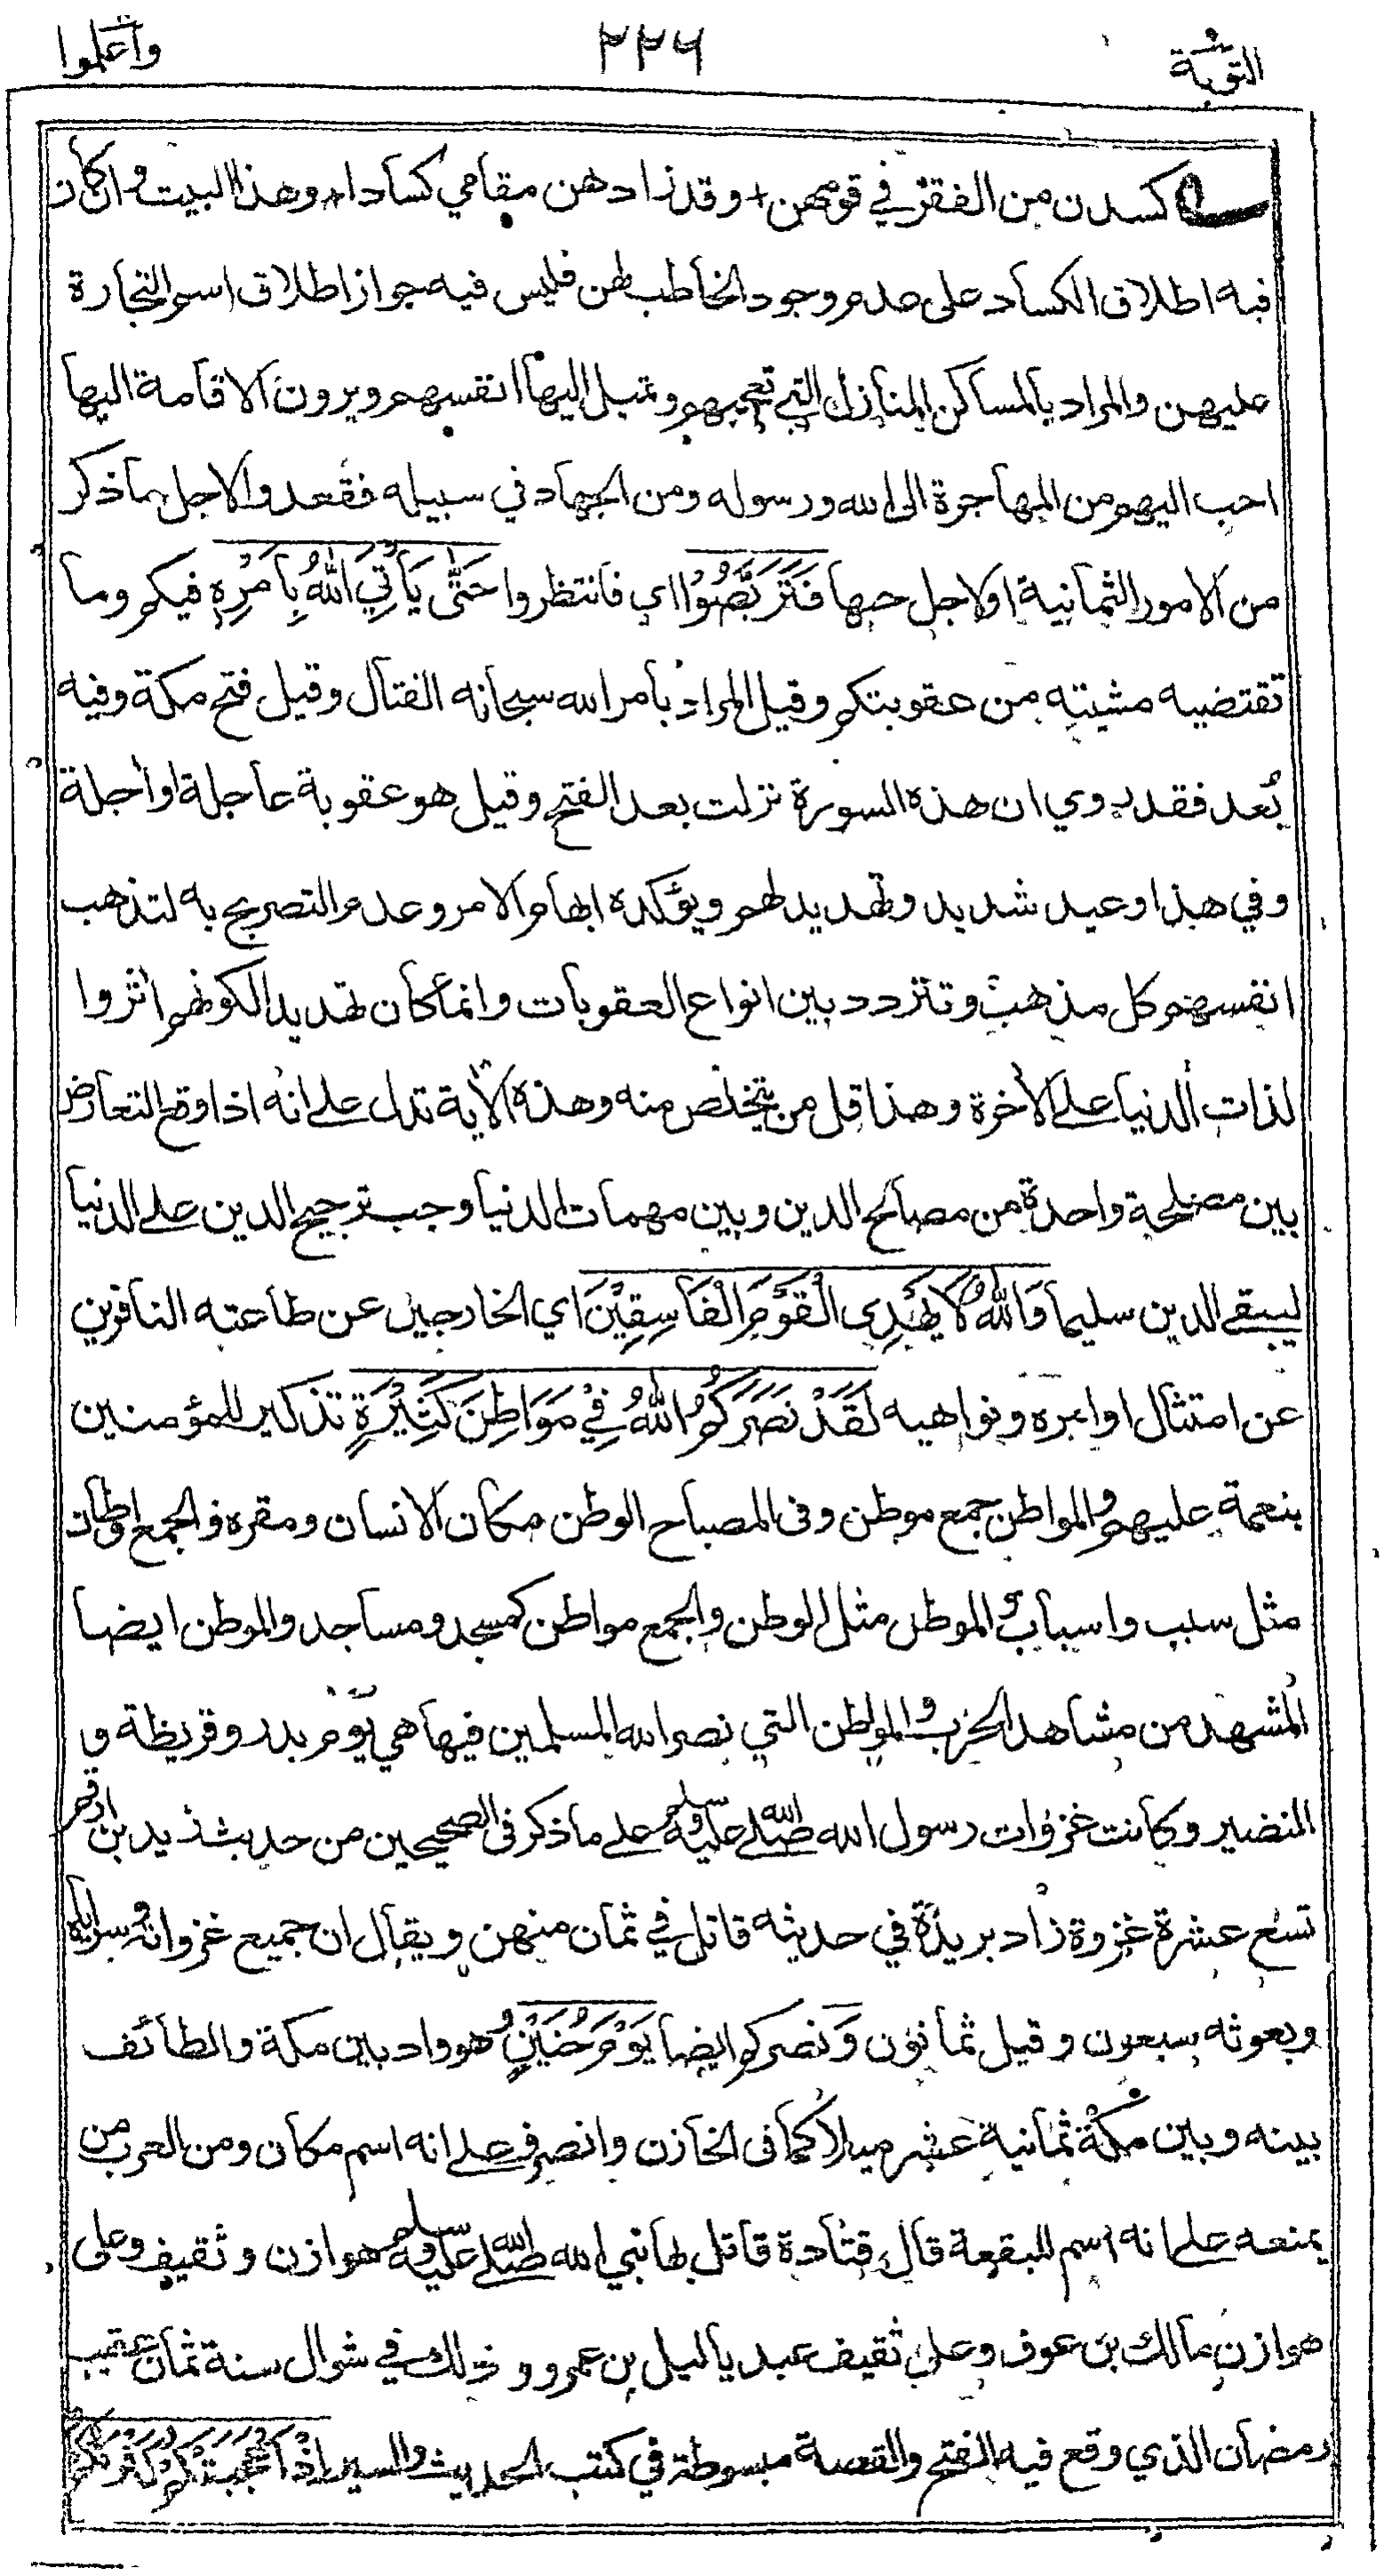 التوبة ٢٢٦ واعلموا
كسدن من الفقر في قومهن + وقد زادهن مقامي كسادا، وهذا البيت وان كان
فيه اطلاق الكساد على عدم وجود الخاطب لهن فليس فيه جواز اطلاق اسم التجارة
عليهن والمراد بالمساكن المنازل التي تعجبهم وتميل اليها انفسهم ويرون الاقامة اليها
احب اليهم من المهاجرة الى الله ورسوله ومن الجهاد في سبيله فقعدوا لاجل ما ذكر
من الامور الثمانية اولاجل حبها فَتَرَبَّصُوْا اي فانتظروا حَتّٰى يَأْتِيَ اللّٰهُ بِأَمْرِهٖ فيكم وما
تقتضيه مشيته من عقوبتكم وقيل المراد بأمر الله سبحانه القتال وقيل فتح مكة وفيه
بُعد فقد روي ان هذه السورة نزلت بعد الفتح وقيل هو عقوبة عاجلة او آجلة
وفي هذا وعيد شديد وتهديد لهم ويؤكده ابهام الامر وعدم التصريح به لتذهب
انفسهم كل مذهب وتتردد بين انواع العقوبات وانما كان تهديدا لكونهم اثروا
لذات الدنيا على الأخرة وهذا قل من يتخلص منه وهذه الأية تدل على انه اذا وقع التعارض
بين مصلحة واحدة من مصالح الدين وبين مهمات الدنيا وجب ترجيح الدين على الدنيا
ليبقى الدين سليما وَاللّٰهُ لَا يَهْدِى الْقَوْمَ الْفَاسِقِيْنَ اي الخارجين عن طاعته النافرين
عن امتثال اوامره ونواهيه لَقَدْ نَصَرَكُمُ اللّٰهُ فِيْ مَوَاطِنَ كَثِيْرَةٍ تذكير للمؤمنين
بنعمة عليهم والمواطن جمع موطن وفى المصباح الوطن مكان الانسان ومقره والجمع اوطان
مثل سبب واسباب والموطن مثل الوطن والجمع مواطن كمسجد ومساجد والموطن ايضا
المشهد من مشاهد الحرب والمواطن التي نصر الله المسلمين فيها هي يوم بدر وقريظة و
النضير وكانت غزوات رسول الله صلى الله عليه وسلم على ما ذكر فى الصحيحين من حديث زيد بن ارقم
تسع عشرة غزوة زاد بريدة في حديثه قاتل في ثمان منهن ويقال ان جميع غزواته وسراياه
وبعوثه سبعون وقيل ثمانون وَ نصركم ايضا يَوْمَ حُنَيْنٍ هو واد بين مكة والطائف
بينه وبين مكة ثمانية عشر ميلا كما فى الخازن وانصرف على انه اسم مكان ومن العرب من
يمنعه على انه اسم للبقعة قال قتادة قاتل بها نبي الله صلى الله عليه وسلم هوازن وثقيف وعلى
هوازن مالك بن عوف وعلى ثقيف عبد ياليل بن عمرو وذلك في شوال سنة ثمان عقيب
رمضان الذي وقع فيه الفتح والقصة مبسوطة في كتب الحديث والسير اِذْ اَعْجَبَتْكُمْ كَثْرَتُكُمْ